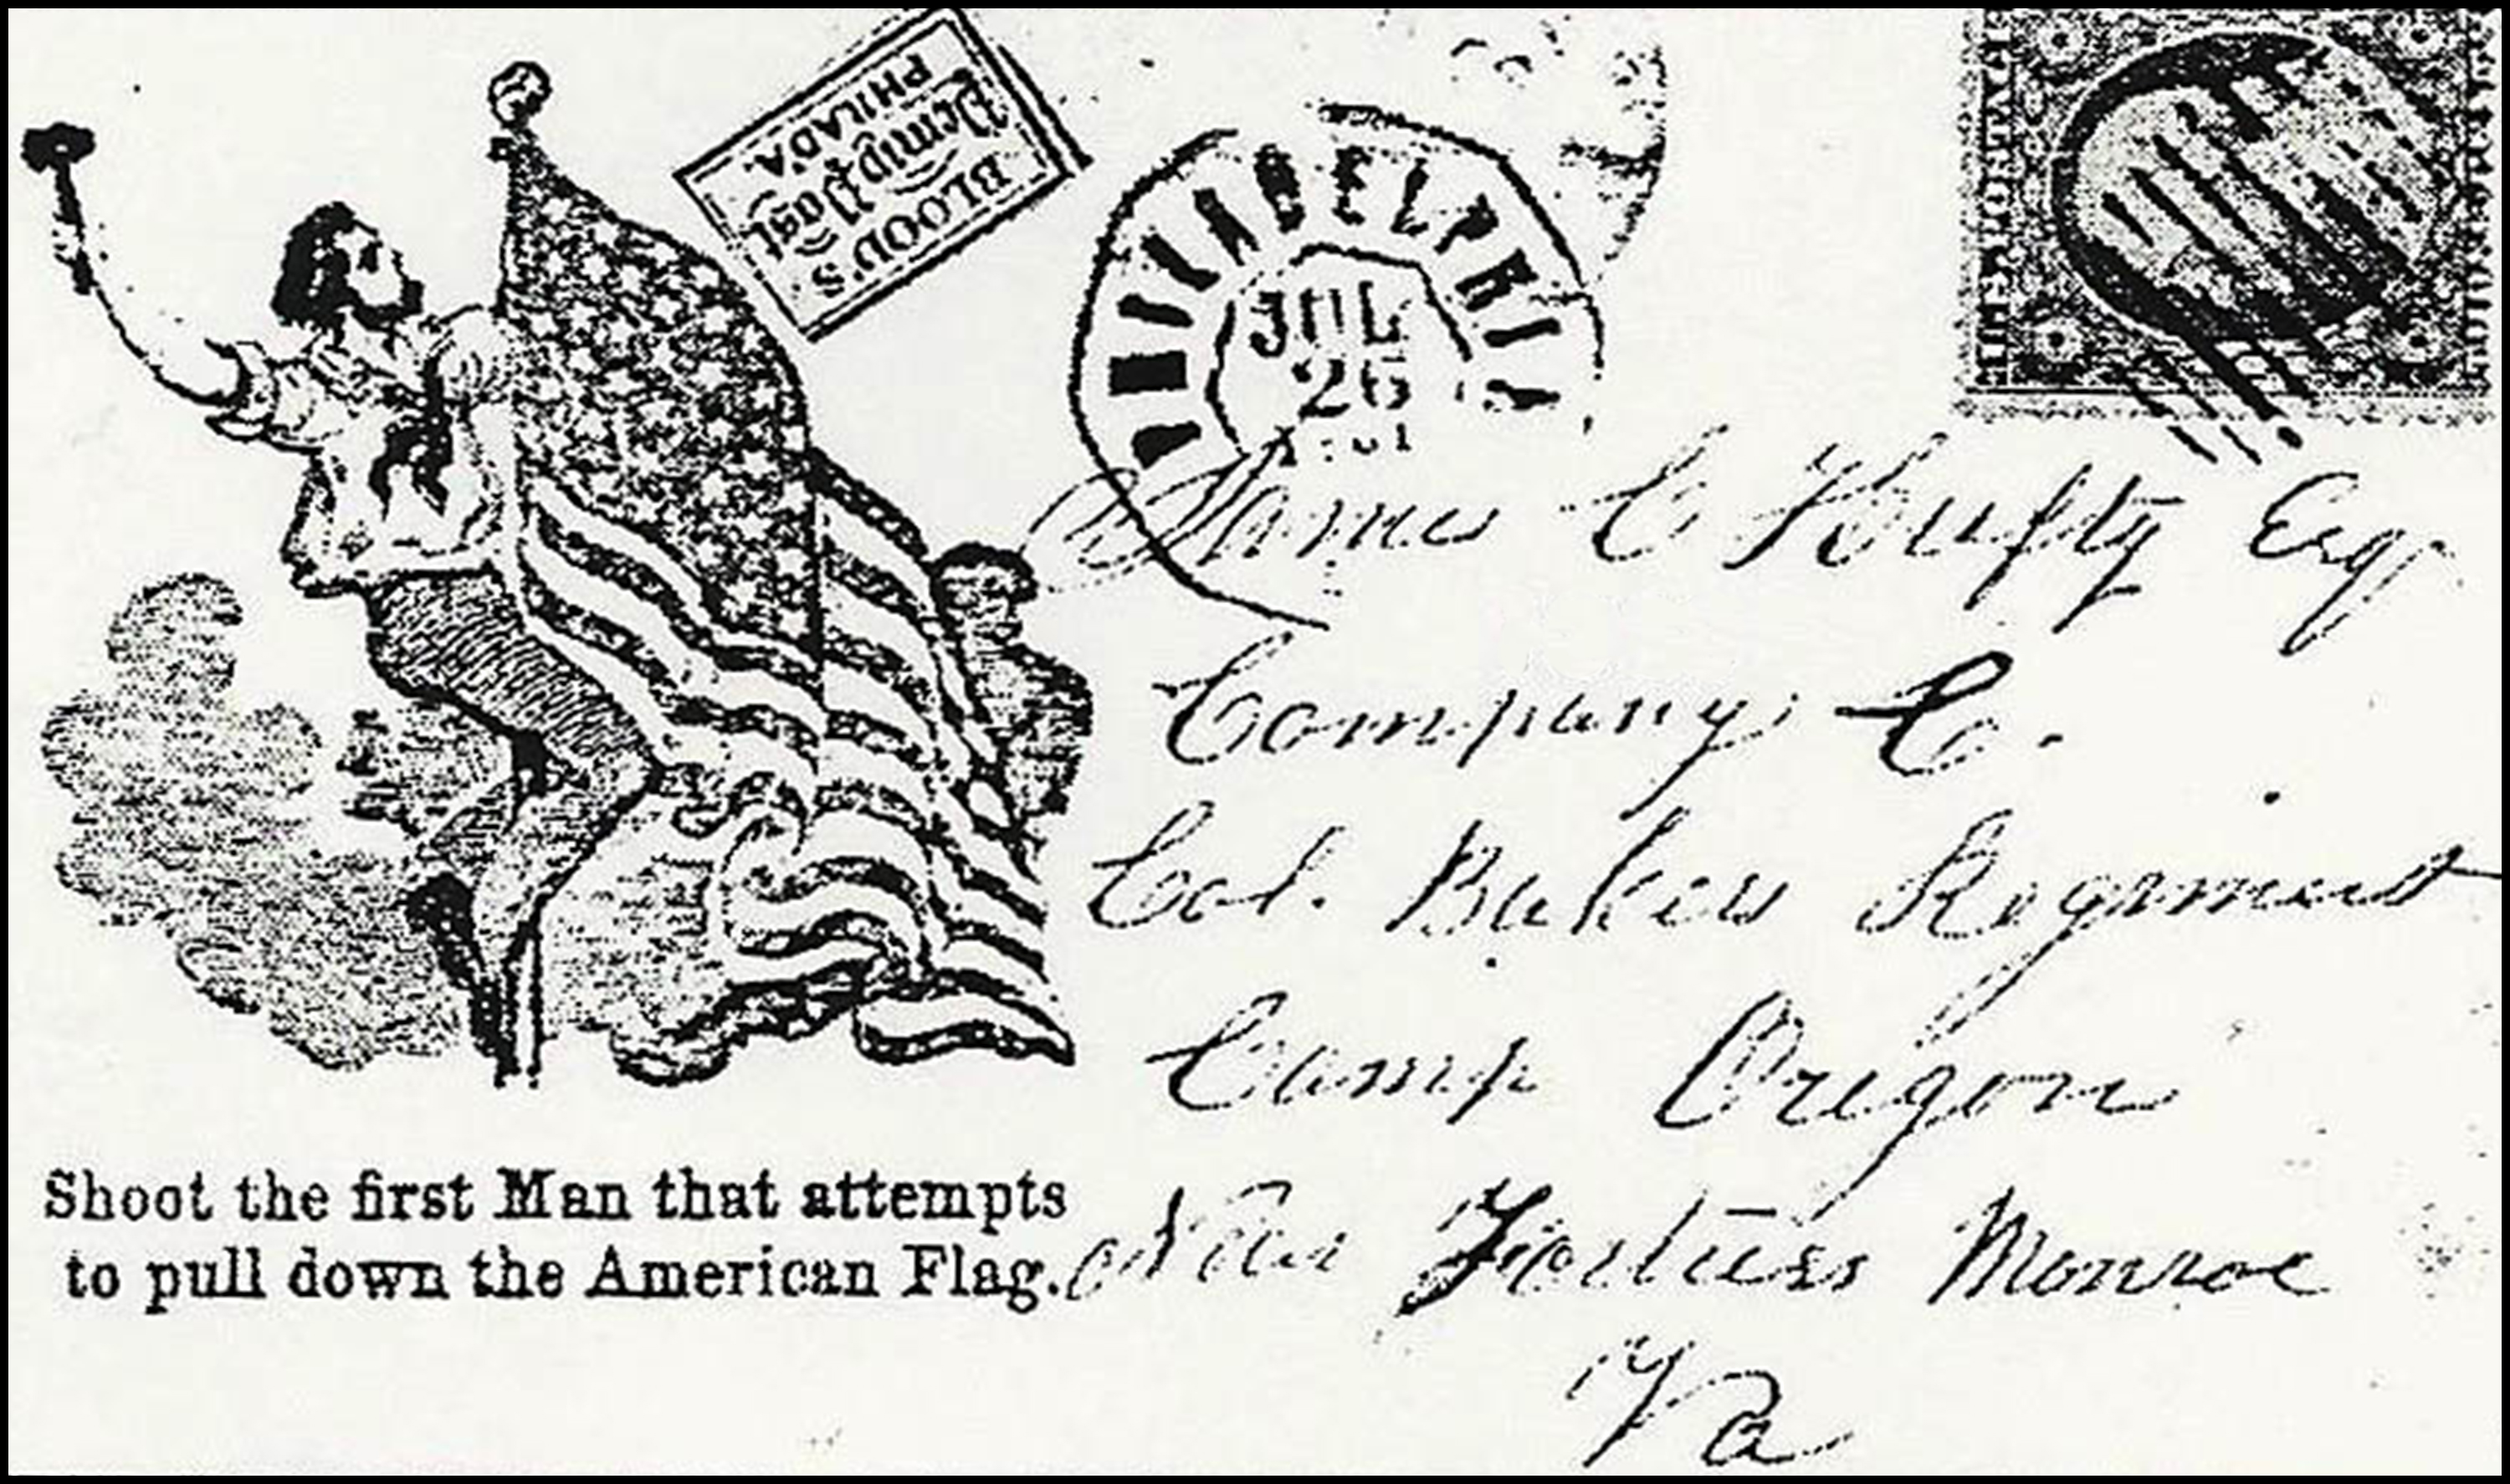 BLOOD'S
Penny Post
PHILAD'A.
PHILADELPHIA
JUL
26
James C Hufty Esq
Company C.
Col. Bakers Regiment
Camp Oregon
Near Fortress Monroe
Va
Shoot the first Man that attempts
to pull down the American Flag.